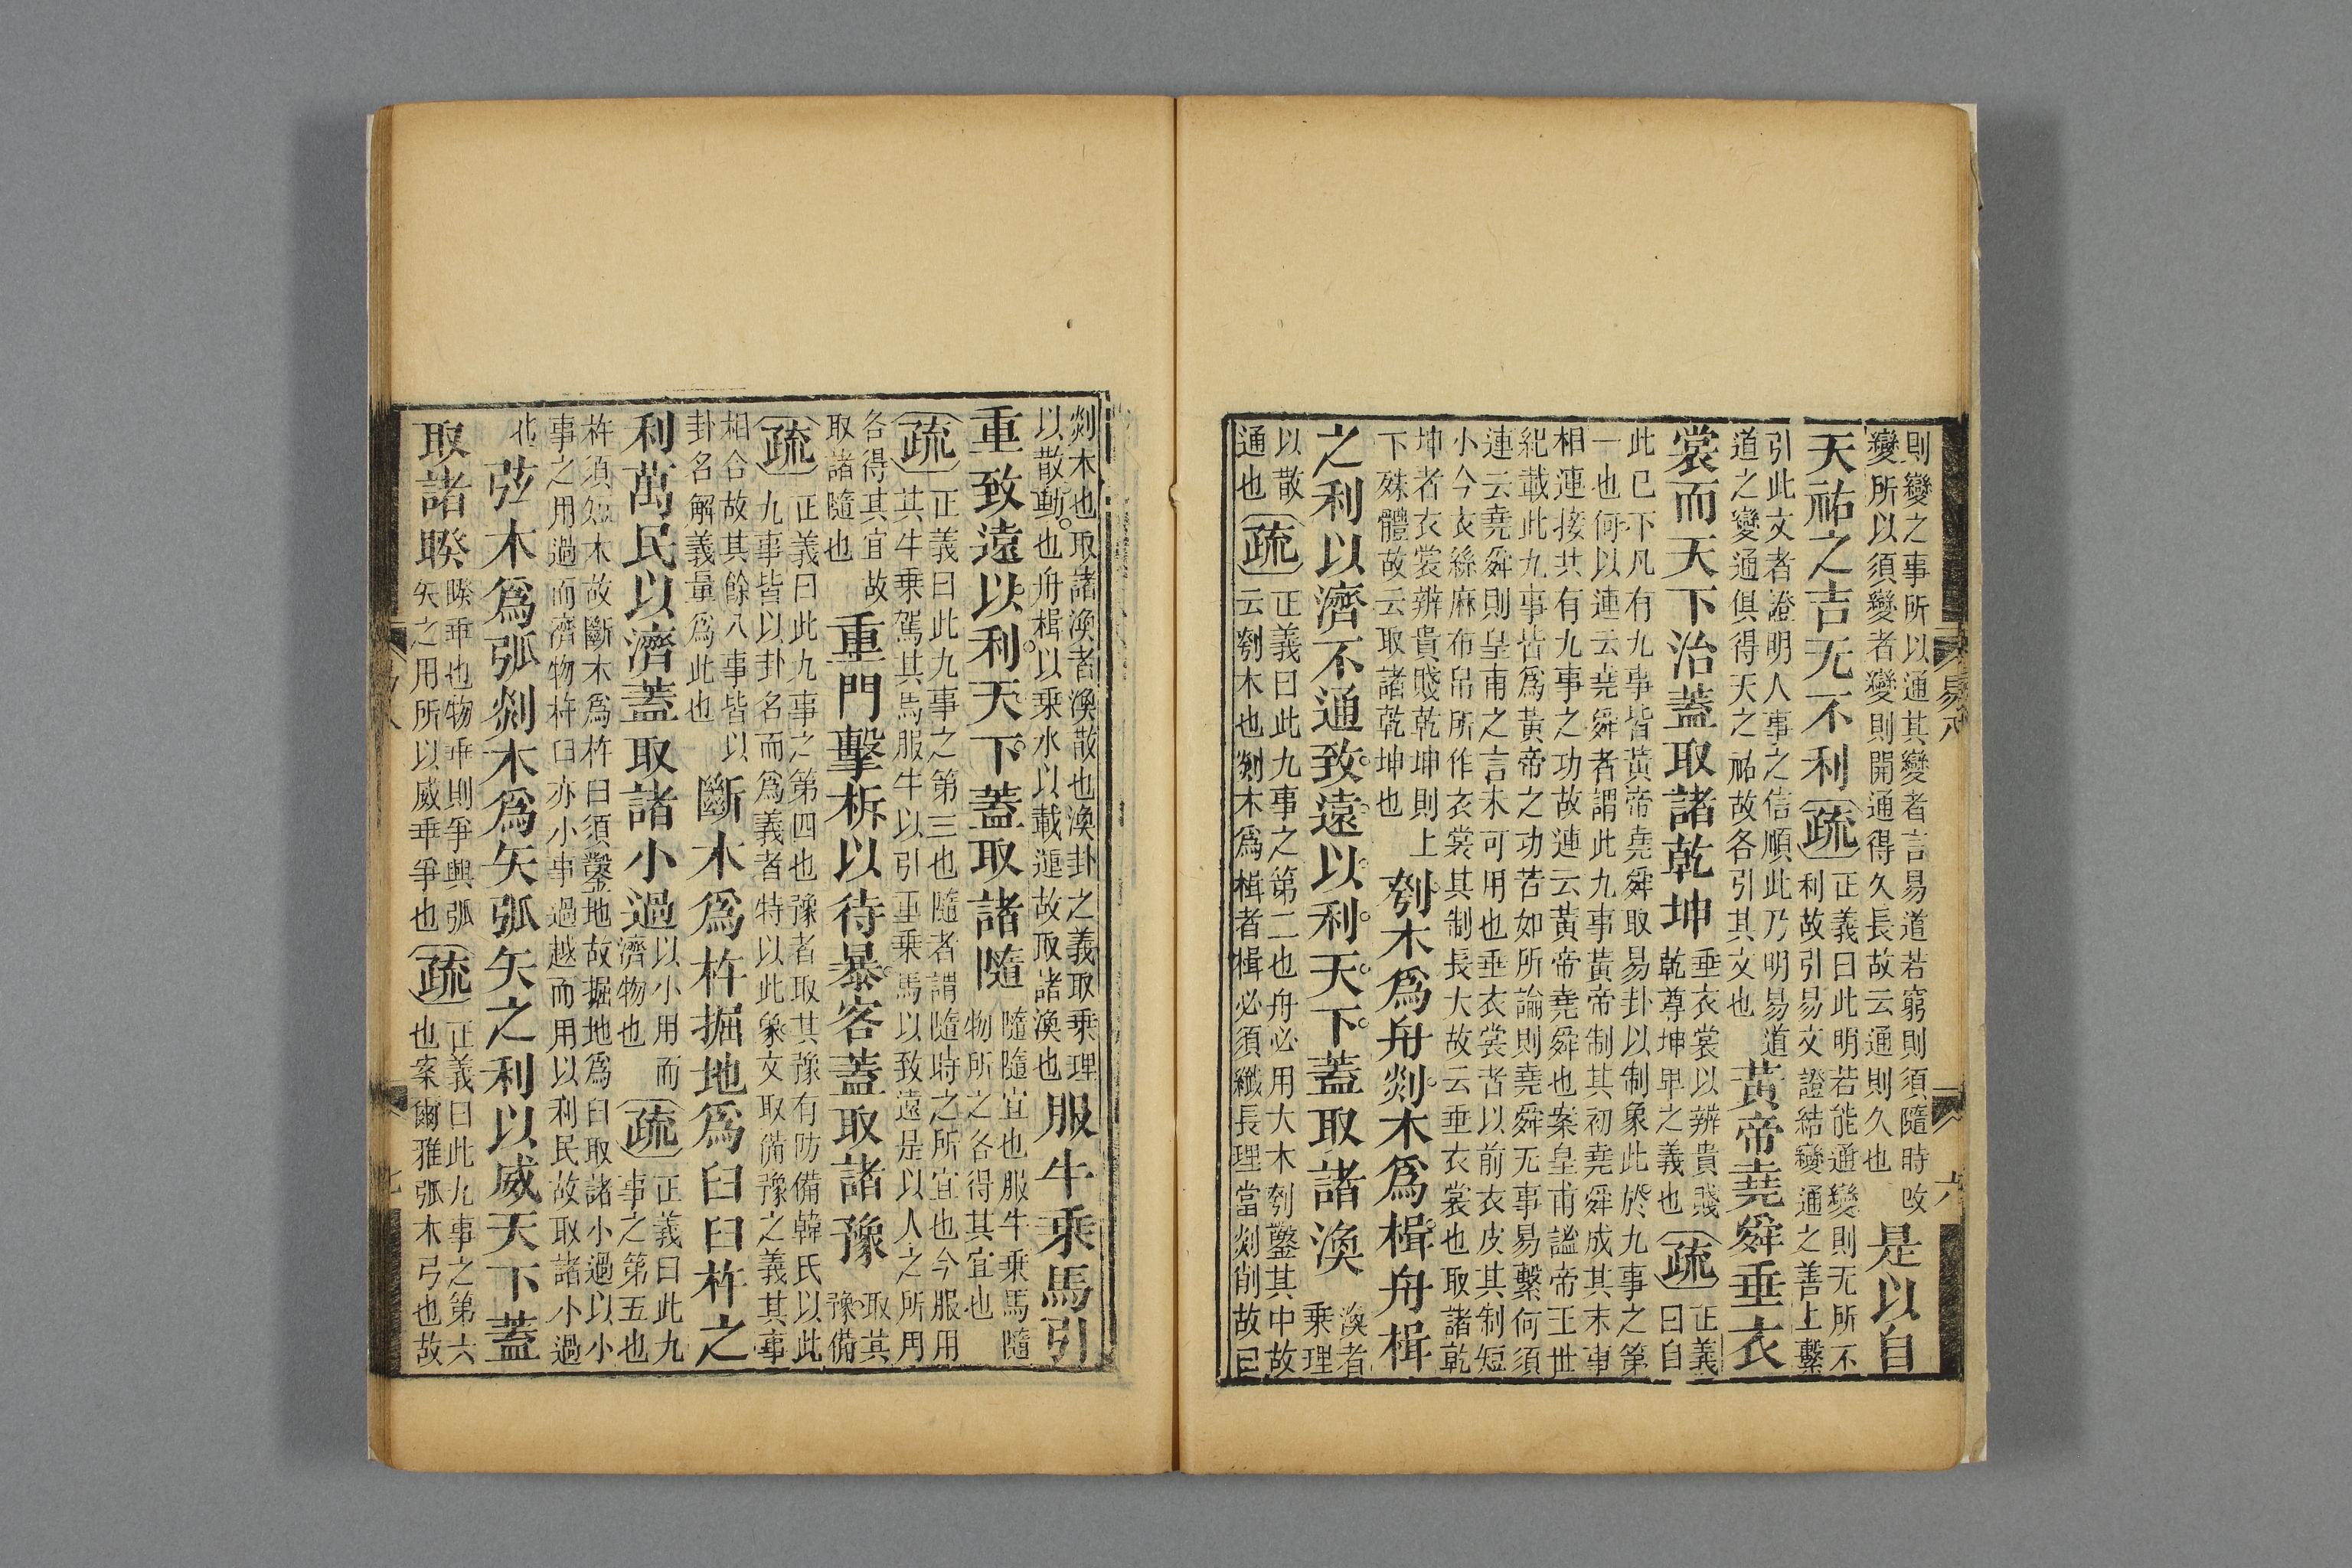 則變之事所以通其變者言易道若窮則須隨時改
變所以須變者變則開通得久長故云通則久也
是以自
天祐之吉无不利疏
正義曰此明若能通變則无所不
利故引易文證結變通之善上繫
引此文者證明人事之信順此乃明易道
道之變通俱得天之祐故各引其文也
黃帝堯舜垂衣
裳而天下治蓋取諸乾坤
垂衣裳以辨貴賤
乾尊坤卑之義也
疏
正義
曰自
此已下凡有九事皆黃帝堯舜取易卦以制象此於九事之第
一也何以連云堯舜者謂此九事黃帝制其初堯舜成其末事
相連接共有九事之功故連云黃帝堯舜也案皇甫謐帝王世
紀載此九事皆爲黃帝之功若如所論則堯舜无事易繫何須
連云堯舜則皇甫之言未可用也垂衣裳者以前衣皮其制短
小今衣絲麻布帛所作衣裳其制長大故云垂衣裳也取諸乾
坤者衣裳辨貴賤乾坤則上
下殊體故云取諸乾坤也
刳木爲舟剡木爲楫舟楫
之利以濟不通致遠以利天下蓋取諸渙
渙者
乘理
以散
通也
疏
正義曰此九事之第二也舟必用大木刳鑿其中故
云刳木也剡木爲楫者楫必須纖長理當剡削故曰
易八
六
剡木也取諸渙者渙散也渙卦之義取乘理
以散動也舟楫以乘水以載運故取諸渙也
服牛乘馬引
重致遠以利天下蓋取諸隨
隨隨宜也服牛乘馬隨
物所之各得其宜也
疏
正義曰此九事之第三也隨者謂隨時之所宜也今服用
其牛乘駕其馬服牛以引重乘馬以致遠是以人之所用
各得其宜故
取諸隨也
重門擊柝以待暴客蓋取諸豫
取其
豫備
疏
正義曰此九事之第四也豫者取其豫有防備韓氏以此
九事皆以卦名而爲義者特以此象文取備豫之義其事
相合故其餘八事皆以
卦名解義量爲此也
斷木爲杵掘地爲臼臼杵之
利萬民以濟蓋取諸小過
以小用而
濟物也
疏
正義曰此九
事之第五也
杵須短木故斷木爲杵臼須鑿地故掘地爲臼取諸小過以小
事之用過而濟物杵臼亦小事過越而用以利民故取諸小過
也
弦木爲弧剡木爲矢弧矢之利以威天下蓋
取諸睽
睽乖也物乖則爭興弧
矢之用所以威乖爭也
疏
正義曰此九事之第六
也案爾雅弧木弓也故
七